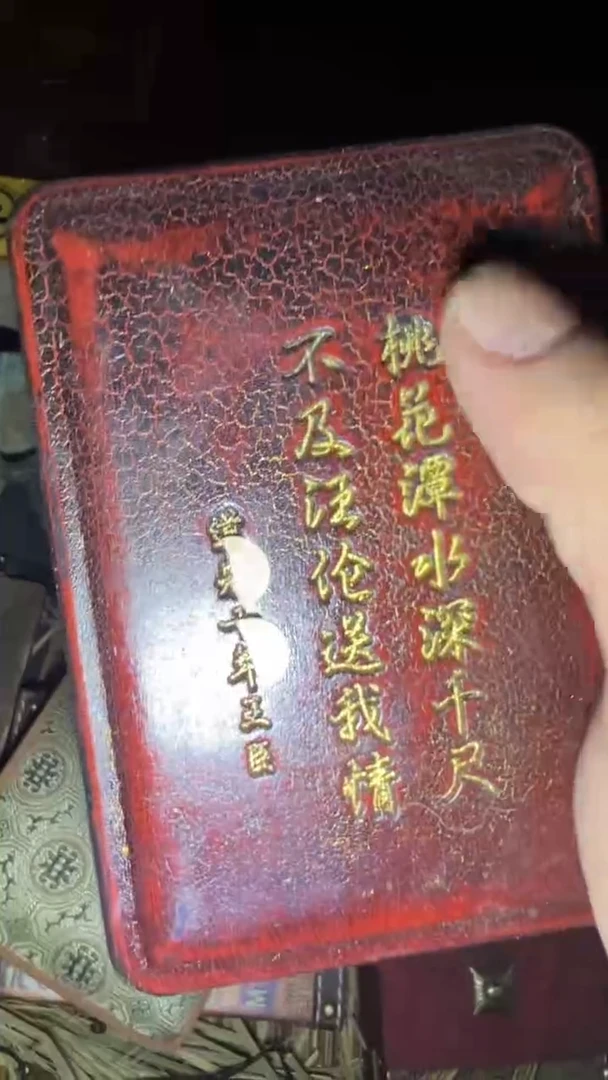 桃花潭水深千尺
不及汪伦送我情
年王臣